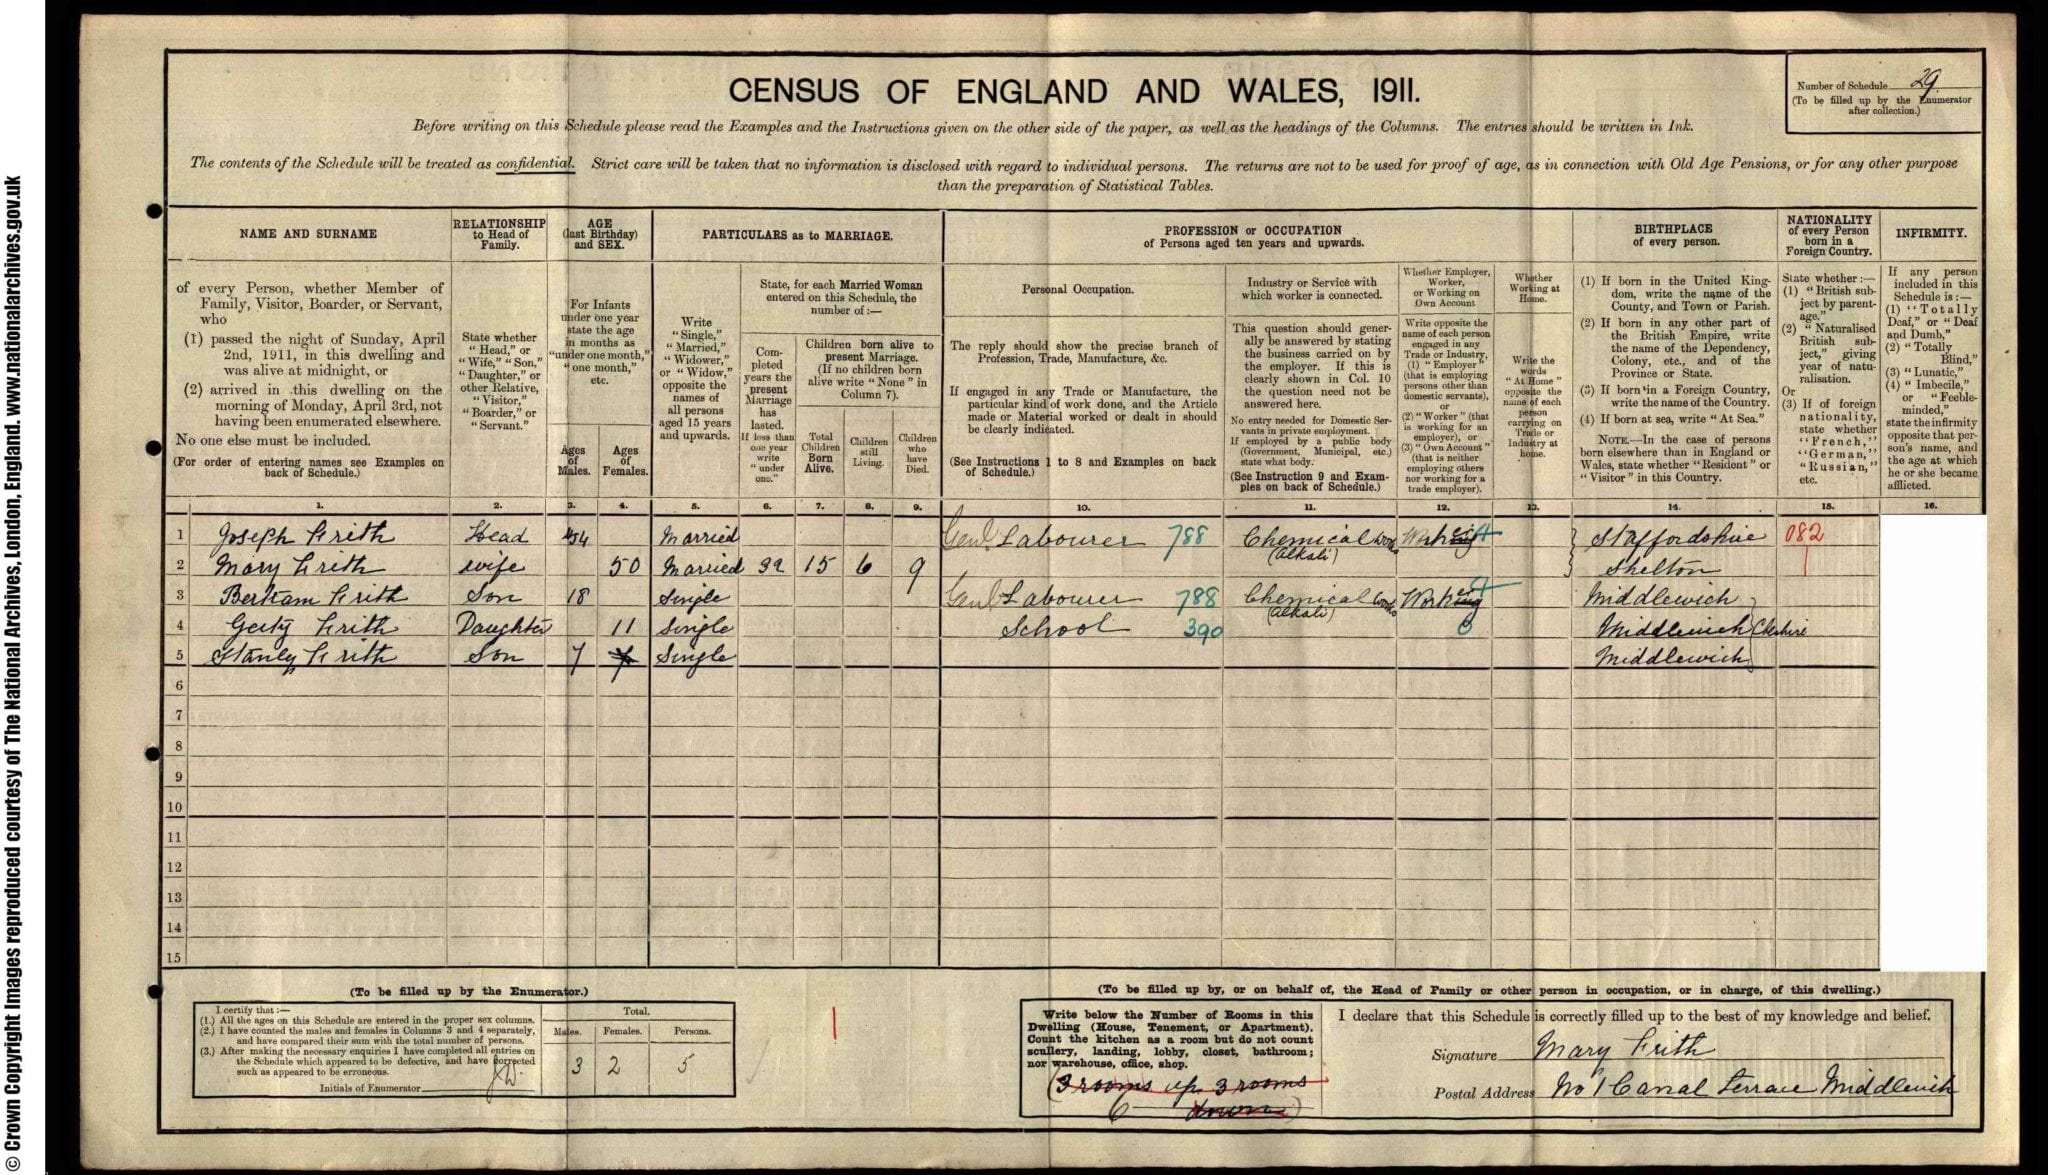 CENSUS OF ENGLAND AND WALES, 1911.
Number of Schedule 29
(To be filled up by the Enumerator
after collection.)
Before writing on this Schedule please read the Examples and the Instructions given on the other side of the paper, as well as the headings of the Columns. The entries should be written in Ink.
The contents of the Schedule will be treated as confidential. Strict care will be taken that no information is disclosed with regard to individual persons. The returns are not to be used for proof of age, as in connection with Old Age Pensions, or for any other purpose
than the preparation of Statistical Tables.
NAME AND SURNAME
of every Person, whether Member of
Family, Visitor, Boarder, or Servant,
who
(1) passed the night of Sunday, April
2nd, 1911, in this dwelling and
was alive at midnight, or
(2) arrived in this dwelling on the
morning of Monday, April 3rd, not
having been enumerated elsewhere.
No one else must be included.
(For order of entering names see Examples on
back of Schedule.)
RELATIONSHIP
to Head of
Family.
State whether
"Head," or
"Wife," "Son,"
"Daughter," or
other Relative,
"Visitor,"
"Boarder," or
"Servant."
AGE
(last Birthday)
and SEX.
For Infants
under one year
state the age
in months as
"under one month,"
"one month,"
etc.
Ages
of
Males.
Ages
of
Females.
PARTICULARS as to MARRIAGE.
Write
"Single,"
"Married,"
"Widower,"
or "Widow,"
opposite the
names of
all persons
aged 15 years
and upwards.
State, for each Married Woman
entered on this Schedule, the
number of:—
Com-
pleted
years the
present
Marriage
has
lasted.
If less than
one year
write
"under
one."
Children born alive to
present Marriage.
(If no children born
alive write "None" in
Column 7).
Total
Children
Born
Alive.
Children
still
Living.
Children
who
have
Died.
PROFESSION or OCCUPATION
of Persons aged ten years and upwards.
Personal Occupation.
The reply should show the precise branch of
Profession, Trade, Manufacture, &c.
If engaged in any Trade or Manufacture, the
particular kind of work done, and the Article
made or Material worked or dealt in should
be clearly indicated.
(See Instructions 1 to 8 and Examples on back
of Schedule.)
Industry or Service with
which worker is connected.
This question should gener-
ally be answered by stating
the business carried on by
the employer. If this is
clearly shown in Col. 10
the question need not be
answered here.
No entry needed for Domestic Ser-
vants in private employment.
If employed by a public body
(Government, Municipal, etc.)
state what body.
(See Instruction 9 and Exam-
ples on back of Schedule.)
Whether Employer,
Worker,
or Working on
Own Account
Write opposite the
name of each person
engaged in any
Trade or Industry,
(1) "Employer"
(that is employing
persons other than
domestic servants),
or
(2) "Worker" (that
is working for an
employer), or
(3) "Own Account"
(that is neither
employing others
nor working for a
trade employer).
Whether
Working at
Home.
Write the
words
"At Home"
opposite the
name of each
person
carrying on
Trade or
Industry at
home.
BIRTHPLACE
of every person.
(1) If born in the United King-
dom, write the name of the
County, and Town or Parish.
(2) If born in any other part of
the British Empire, write
the name of the Dependency,
Colony, etc., and of the
Province or State.
(3) If born in a Foreign Country,
write the name of the Country.
(4) If born at sea, write "At Sea."
NOTE.—In the case of persons
born elsewhere than in England or
Wales, state whether "Resident" or
"Visitor" in this Country.
NATIONALITY
of every Person
born in a
Foreign Country.
State whether:—
(1) "British sub-
ject by parent-
age."
(2) "Naturalised
British sub-
ject," giving
year of natu-
ralisation.
Or
(3) If of foreign
nationality,
state whether
"French,"
"German,"
"Russian,"
etc.
INFIRMITY.
If any person
included in this
Schedule is:—
(1) "Totally
Deaf," or "Deaf
and Dumb,"
(2) "Totally
Blind,"
(3) "Lunatic,"
(4) "Imbecile,"
or "Feeble-
minded,"
state the infirmity
opposite that per-
son's name, and
the age at which
he or she became
afflicted.
1. 2. 3. 4. 5. 6. 7. 8. 9. 10. 11. 12. 13. 14. 15. 16.
1 Joseph Frith Head 54 Married Genl Labourer 788 Chemical Works (Alkali) Worker Staffordshire 082
2 Mary Frith wife 50 Married 32 15 6 9 Shelton
3 Bertram Frith Son 18 Single Genl Labourer 788 Chemical Works (Alkali) Worker Middlewich
4 Gerty Frith Daughter 11 Single School 390 0 Middlewich Cheshire
5 Stanley Frith Son 7 Single Middlewich
6
7
8
9
10
11
12
13
14
15
(To be filled up by the Enumerator.)
I certify that:—
(1.) All the ages on this Schedule are entered in the proper sex columns.
(2.) I have counted the males and females in Columns 3 and 4 separately,
and have compared their sum with the total number of persons.
(3.) After making the necessary enquiries I have completed all entries on
the Schedule which appeared to be defective, and have corrected
such as appeared to be erroneous.
Initials of Enumerator
Total.
Males. Females. Persons.
3 2 5
(To be filled up by, or on behalf of, the Head of Family or other person in occupation, or in charge, of this dwelling.)
Write below the Number of Rooms in this
Dwelling (House, Tenement, or Apartment).
Count the kitchen as a room but do not count
scullery, landing, lobby, closet, bathroom;
nor warehouse, office, shop.
(3 rooms up 3 rooms
6 down)
I declare that this Schedule is correctly filled up to the best of my knowledge and belief.
Signature Mary Frith
Postal Address No 1 Canal Terrace Middlewich
© Crown Copyright Images reproduced courtesy of The National Archives, London, England. www.nationalarchives.gov.uk